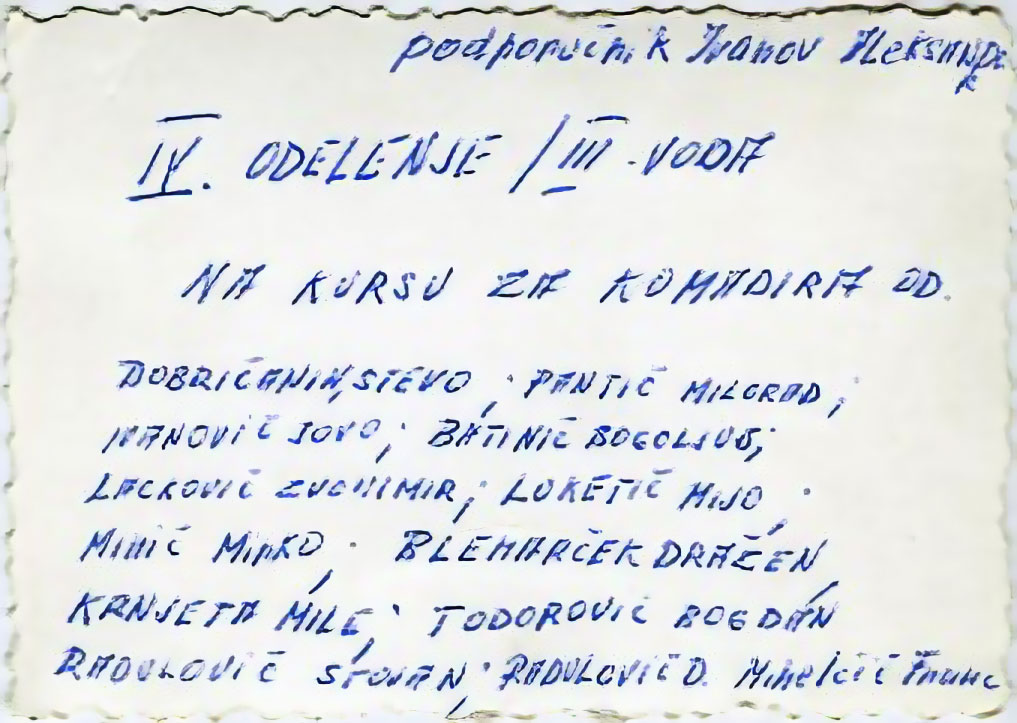 podporučnik Ivanov Aleksandar
IV. ODELENJE / III. VODA
NA KURSU ZA KOMADIRA OD.
DOBRIČANIN, STEVO; PANTIČ MILORAD;
IVANOVIČ JOVO; BATINIČ BOGOLJUB;
LACKOVIČ ZVONIMIR; LUKETIČ MIJO;
MINIČ MIRKO; BLEMARČEK DRAŽEN,
KRNJETA MILE; TODOROVIČ BOGDAN
RADULOVIČ STOJAN; RADULOVIČ D. Mihelčič Franc